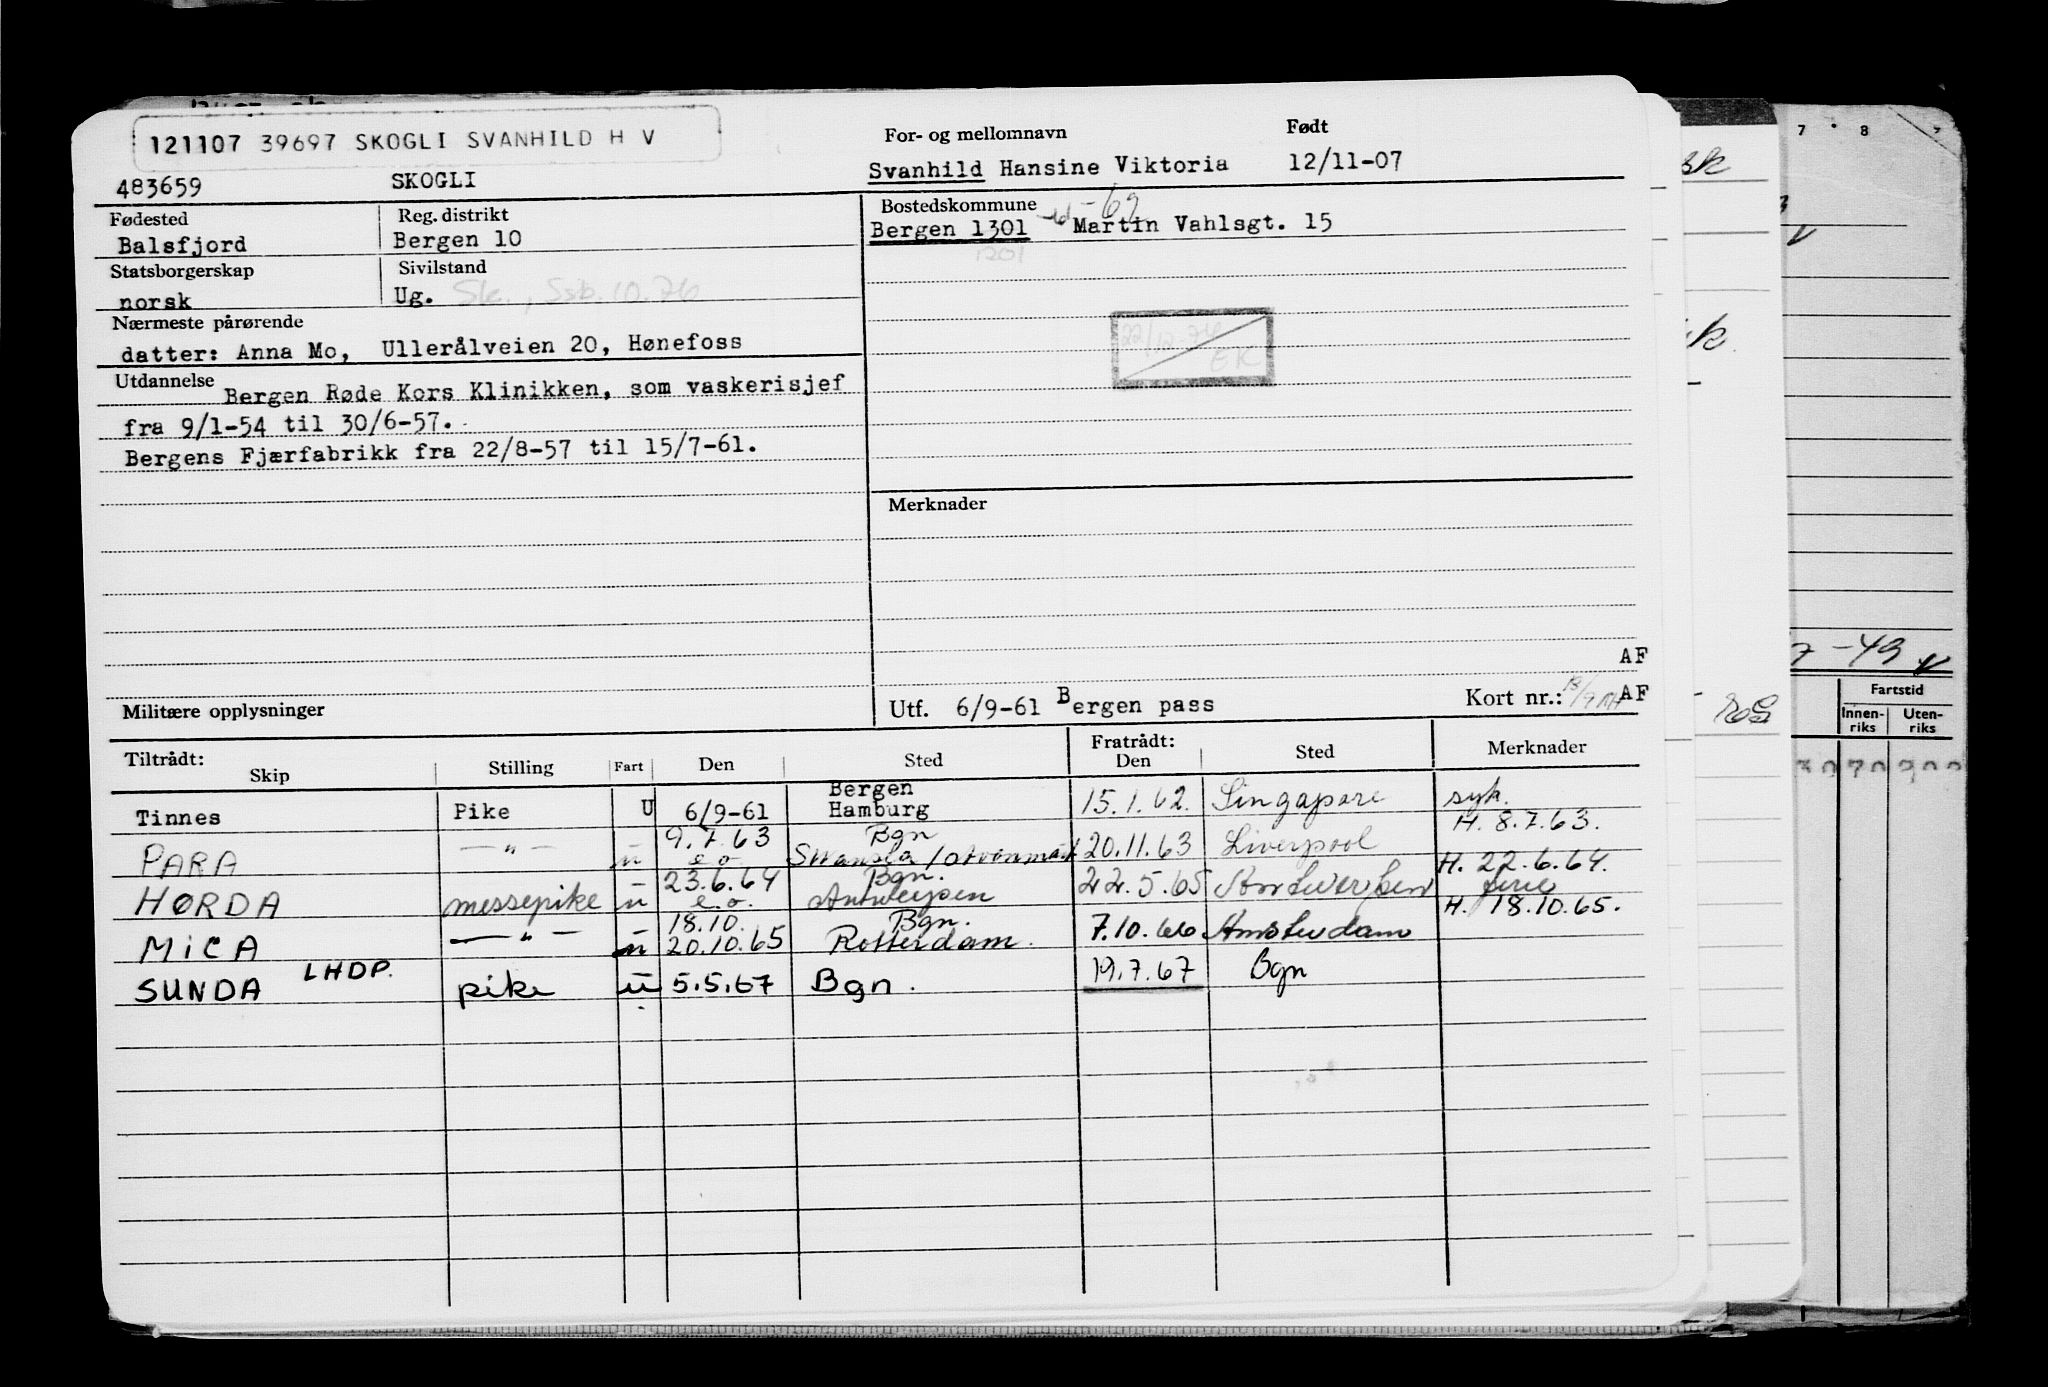 121107 39697 SKOGLI SVANHILD H V
For- og mellomnavn Født
483659 SKOGLI Svanhild Hansine Viktoria 12/11-07
Fødested Reg. distrikt Bostedskommune -69
Balsfjord Bergen 10 Bergen 1301 Martin Vahlsgt. 15
1201
Statsborgerskap Sivilstand
norsk Ug. Sk., Ssb. 10.76
Nærmeste pårørende
datter: Anna Mo, Ullerålveien 20, Hønefoss
22/12-74
EK
Utdannelse Bergen Røde Kors Klinikken, som vaskerisjef
fra 9/1-54 til 30/6-57.
Bergens Fjærfabrikk fra 22/8-57 til 15/7-61.
Merknader
AF
Militære opplysninger Utf. 6/9-61 Bergen pass Kort nr.: AF
Tiltrådt: Fratrådt:
Skip Stilling Fart Den Sted Den Sted Merknader
Tinnes Pike U 6/9-61 Bergen Hamburg 15.1.62. Singapore syk.
H. 8.7.63.
PARA —"— u 9.7.63 e.o. Bgn Swansea / 20.11.63 Liverpool
H. 22.6.64.
HØRDA messepike u 23.6.64 e.o. Bgn. Antwerpen 22.5.65 Antwerpen ferie
H. 18.10.65.
MICA —"— u 18.10. 20.10.65 Bgn. Rotterdam. 7.10.66 Amsterdam
SUNDA LHDP. pike u 5.5.67 Bgn. 19.7.67 Bgn
7 8
sk
7 -49
Fartstid
Innen-riks Uten-riks